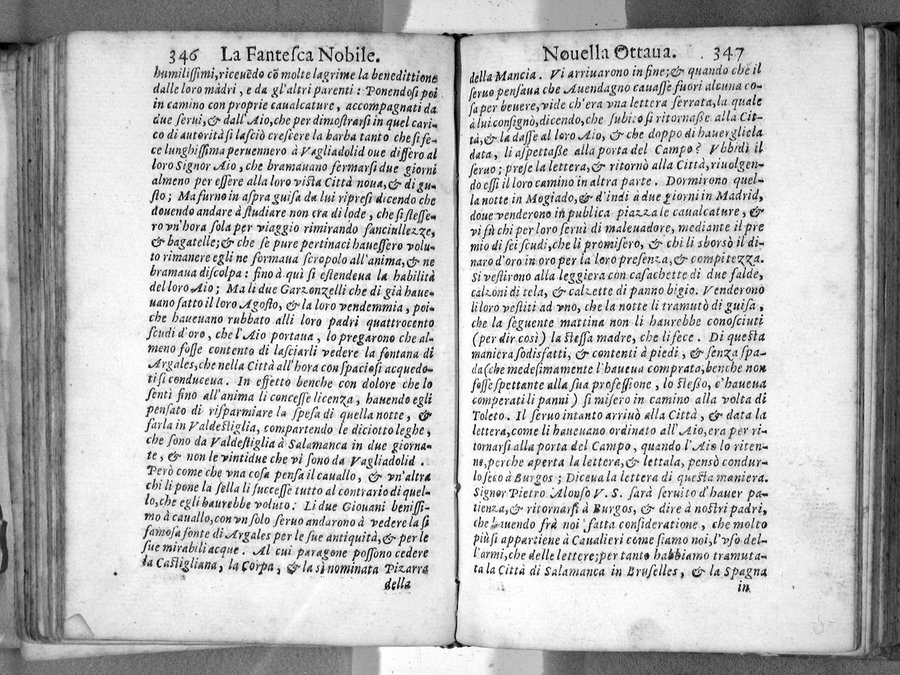 346 La Fanteſca Nobile.
humiliſſimi, riceuẽdo cõ molte lagrime la benedittione
dalle loro madri, e da gl'altri parenti: Ponendoſi poi
in camino con proprie caualcature, accompagnati da
due ſerui, & dall'Aio, che per dimoſtrarſi in quel cari-
co di autorità ſi laſciò creſcere la barba tanto che ſi fe-
ce lunghiſſima peruennero à Vagliadolid oue diſſero al
loro Signor Aio, che bramauano fermarſi due giorni
almeno per eſſere alla loro viſta Città noua, & di gu-
ſto; Ma furno in aſpra guiſa da lui ripreſi dicendo che
douendo andare à ſtudiare non era di lode, che ſi ſteſſe-
ro vn'hora ſola per viaggio rimirando fanciullezze,
& bagatelle; & che ſe pure pertinaci haueſſero volu-
to rimanere egli ne formaua ſcropolo all'anima, & ne
bramaua diſcolpa: fino à quì ſi eſtendeua la habilità
del loro Aio; Ma li due Garzonzelli che di già haue-
uano fatto il loro Agoſto, & la loro vendemmia, poi-
che haueuano rubbato alli loro padri quattrocento
ſcudi d'oro, che l'Aio portaua, lo pregarono che al-
meno foſſe contento di laſciarli vedere la fontana di
Argales, che nella Città all'hora con ſpacioſi acquedo-
ti ſi conduceua. In effetto benche con dolore che lo
ſentì fino all'anima li conceſſe licenza, hauendo egli
penſato di riſparmiare la ſpeſa di quella notte, &
farla in Valdeſtiglia, compartendo le diciotto leghe,
che ſono da Valdeſtiglia à Salamanca in due giorna-
te, & non le vintidue che vi ſono da Vagliadolid.
Però come che vna coſa penſa il cauallo, & vn'altra
chi li pone la ſella li ſucceſſe tutto al contrario di quel-
lo, che egli haurebbe voluto: Li due Giouani beniſſi-
mo à cauallo, con vn ſolo ſeruo andarono à vedere la ſi
famoſa fonte di Argales per le ſue antiquità, & per le
ſue mirabili acque. Al cui paragone poſſono cedere
la Caſtigliana, la Corpa, & la sì nominata Pizarra
della
Nouella Ottaua. 347
della Mancia. Vi arriuarono in fine; & quando che il
ſeruo penſaua che Auendagno cauaſſe fuori alcuna co-
ſa per beuere, vide ch'era vna lettera ſerrata, la quale
à lui conſignò, dicendo, che ſubito ſi ritornaſſe alla Cit-
tà, & la daſſe al loro Aio, & che doppo di hauergliela
data, li aſpettaſſe alla porta del Campo? Vbbidì il
ſeruo; preſe la lettera, & ritornò alla Città, riuolgen-
do eſſi il loro camino in altra parte. Dormirono quel-
la notte in Mogiado, & d'indi à due giorni in Madrid,
doue venderono in publica piazza le caualcature, &
vi fù chi per loro ſeruì di maleuadore, mediante il pre
mio di ſei ſcudi, che li promiſero, & chi li sborsò il di-
naro d'oro in oro per la loro preſenza, & compitezza.
Si veſtirono alla leggiera con caſachette di due falde,
calzoni di tela, & calzette di panno bigio. Venderono
li loro veſtiti ad vno, che la notte li tramutò di guiſa,
che la ſeguente mattina non li haurebbe conoſciuti
(per dir così) la ſteſſa madre, che li fece. Di queſta
maniera ſodisfatti, & contenti à piedi, & ſenza ſpa-
da (che medeſimamente l'haueua comprata, benche non
foſſe ſpettante alla ſua profeſſione, lo ſteſſo, c'haueua
comperati li panni) ſi miſero in camino alla volta di
Toleto. Il ſeruo intanto arriuò alla Città, & data la
lettera, come li haueuano ordinato all'Aio, era per ri-
tornarſi alla porta del Campo, quando l'Aio lo riten-
ne, perche aperta la lettera, & lettala, penſò condur-
lo ſeco à Burgos; Diceua la lettera di queſta maniera.
Signor Pietro Alonſo V. S. ſarà ſeruito d'hauer pa-
tienza, & ritornarſi à Burgos, & dire à noſtri padri,
che hauendo frà noi fatta conſideratione, che molto
più ſi appartiene à Caualieri come ſiamo noi, l'vſo del-
l'armi, che delle lettere; per tanto habbiamo tramuta-
ta la Città di Salamanca in Bruſelles, & la Spagna
in